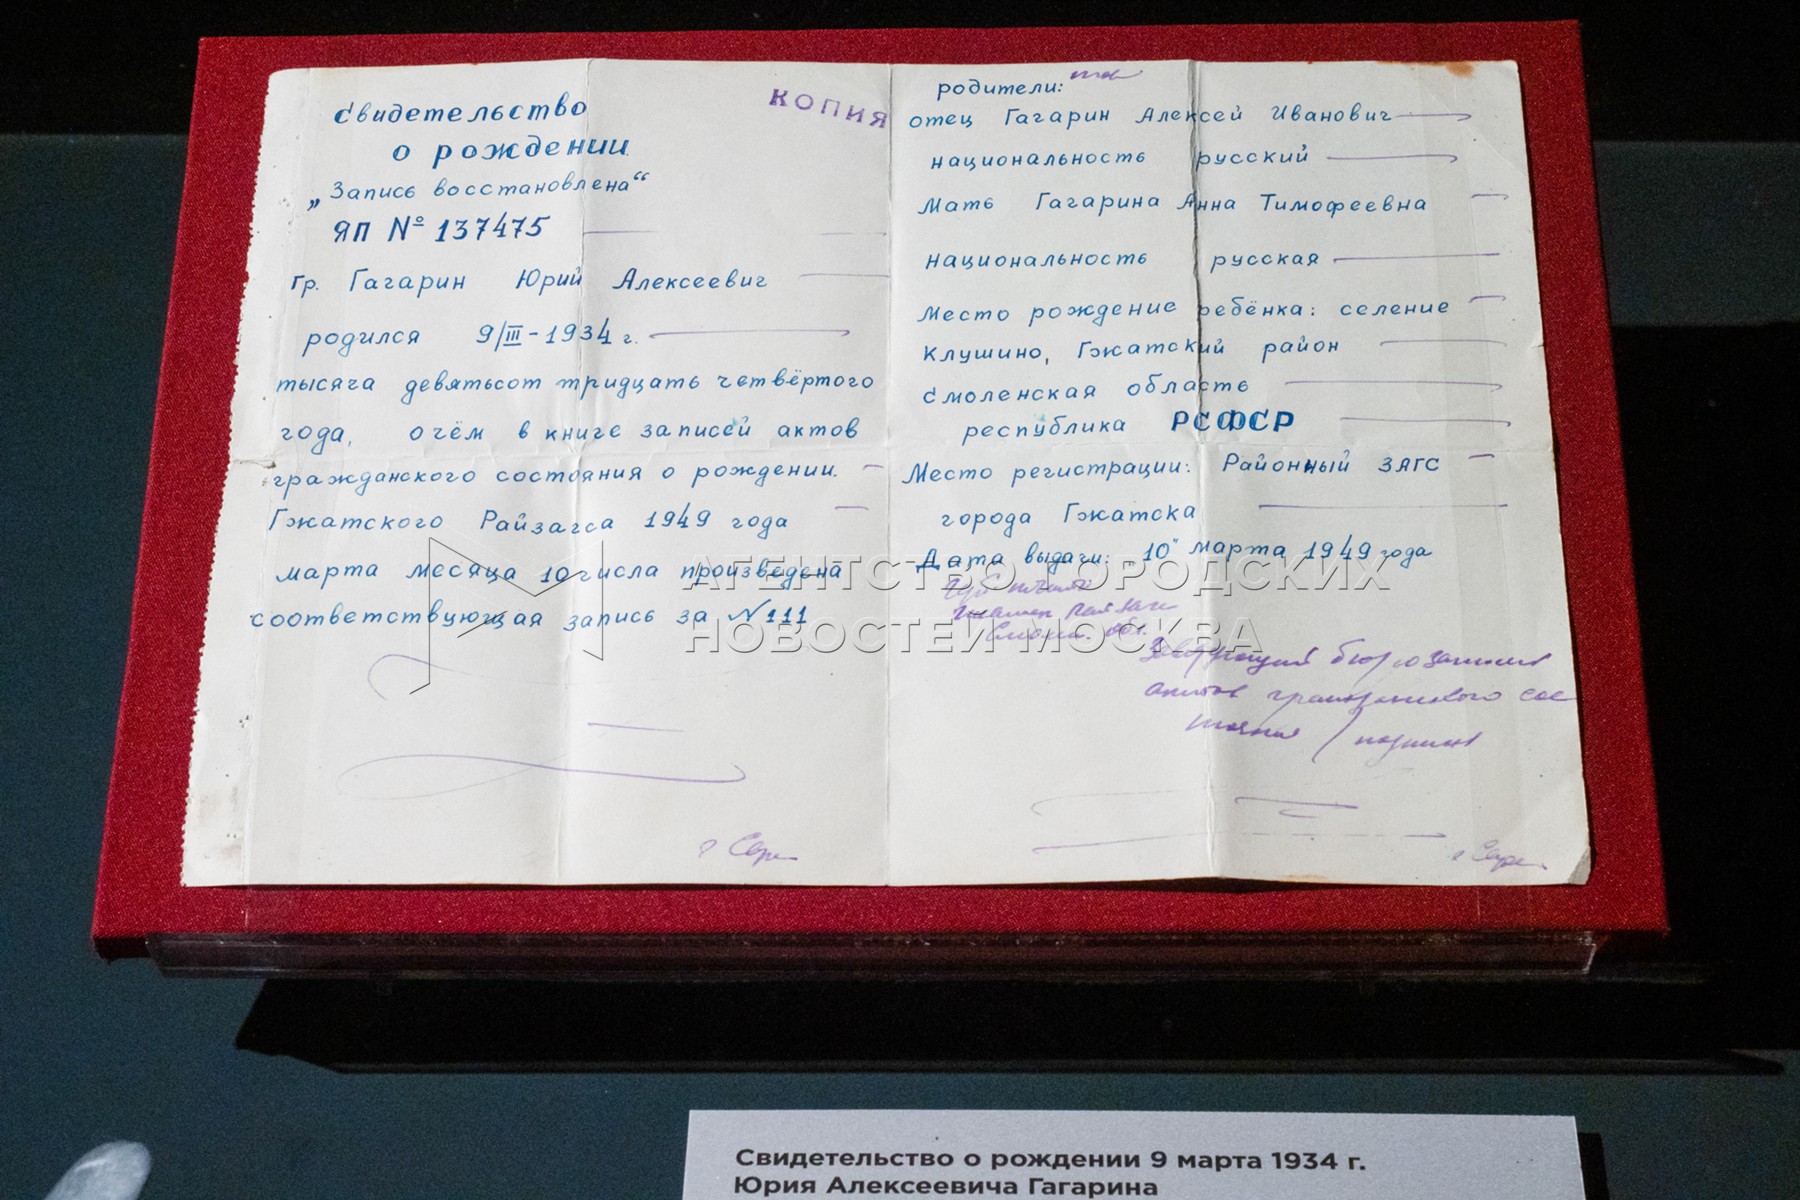 КОПИЯ
Свидетельство
о рождении
„Запись восстановлена“
ЯП № 137475
гр. Гагарин Юрий Алексеевич
родился 9/III-1934 г.
тысяча девятьсот тридцать четвёртого
года, о чём в книге записей актов
гражданского состояния о рождении.
Гжатского Райзагса 1949 года
марта месяца 10 числа произведена
соответствующая запись за № 111
родители:
отец Гагарин Алексей Иванович
национальность русский
Мать Гагарина Анна Тимофеевна
национальность русская
Место рождение ребёнка: селение
Клушино, Гжатский район
Смоленская область
республика РСФСР
Место регистрации: Районный ЗАГС
города Гжатска
Дата выдачи: 10" марта 1949 года
Заведующий бюро записи
актов гражданского сос
тояния / подпись
АГЕНТСТВО ГОРОДСКИХ
НОВОСТЕЙ МОСКВА
Свидетельство о рождении 9 марта 1934 г.
Юрия Алексеевича Гагарина